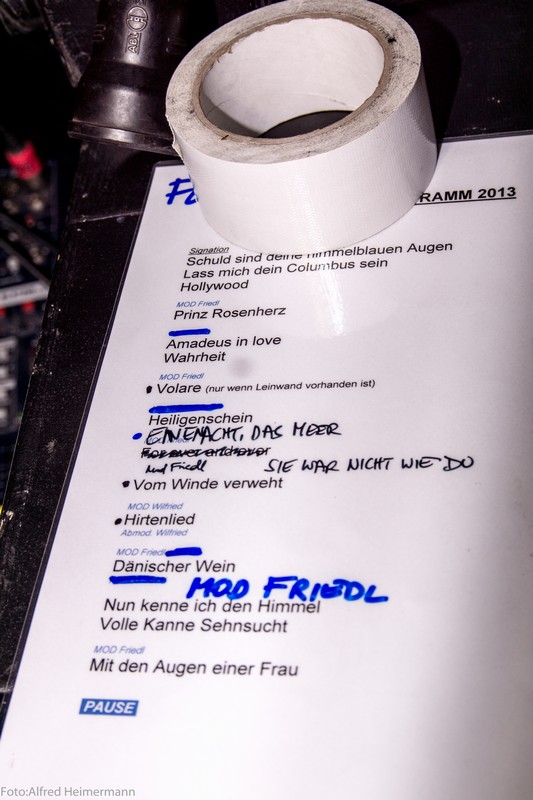 RAMM 2013
Signation
Schuld sind deine himmelblauen Augen
Lass mich dein Columbus sein
Hollywood
MOD Friedl
Prinz Rosenherz
Amadeus in love
Wahrheit
MOD Friedl
Volare (nur wenn Leinwand vorhanden ist)
Heiligenschein
EINE NACHT, DAS MEER
Forever and ever
und Friedl SIE WAR NICHT WIE DU
Vom Winde verweht
MOD Wilfried
Hirtenlied
Abmod. Wilfried
MOD Friedl
Dänischer Wein
MOD FRIEDL
Nun kenne ich den Himmel
Volle Kanne Sehnsucht
MOD Friedl
Mit den Augen einer Frau
PAUSE
Foto:Alfred Heimermann